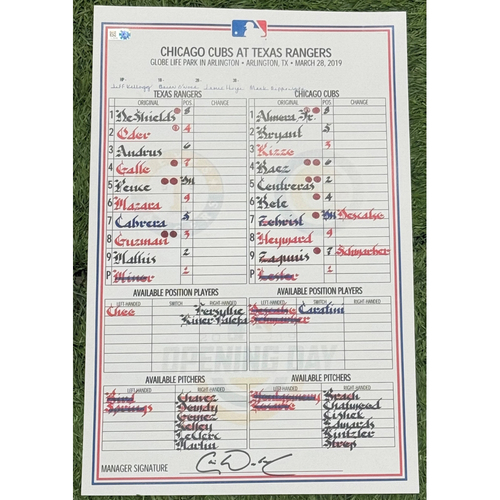 CHICAGO CUBS AT TEXAS RANGERS
GLOBE LIFE PARK IN ARLINGTON • ARLINGTON, TX • MARCH 28, 2019
TEXAS RANGERS CHICAGO CUBS
ORIGINAL POS. CHANGE ORIGINAL POS. CHANGE
1 DeShields 8 1 Almora, Jr. 8
2 Odor 4 2 Bryant 5
3 Andrus 6 3 Rizzo 3
4 Gallo 7 4 Baez 6
5 Pence DH 5 Contreras 2
6 Mazara 9 6 Bote 4
7 Cabrera 5 7 Zobrist DH Descalso
8 Guzman 3 8 Heyward 9
9 Mathis 2 9 Zagunis 7 Schwarber
P Minor 1 P Lester 1
AVAILABLE POSITION PLAYERS AVAILABLE POSITION PLAYERS
LEFT-HANDED SWITCH RIGHT-HANDED LEFT-HANDED SWITCH RIGHT-HANDED
Choo Forsythe Descalso Caratini
Kiner-Falefa Schwarber
OPENING DAY
AVAILABLE PITCHERS AVAILABLE PITCHERS
LEFT-HANDED RIGHT-HANDED LEFT-HANDED RIGHT-HANDED
Springs Chavez Montgomery Brach
Gomez Chatwood
Kelley Cishek
LeClerc Edwards
Martin Kintzler
Strop
MANAGER SIGNATURE